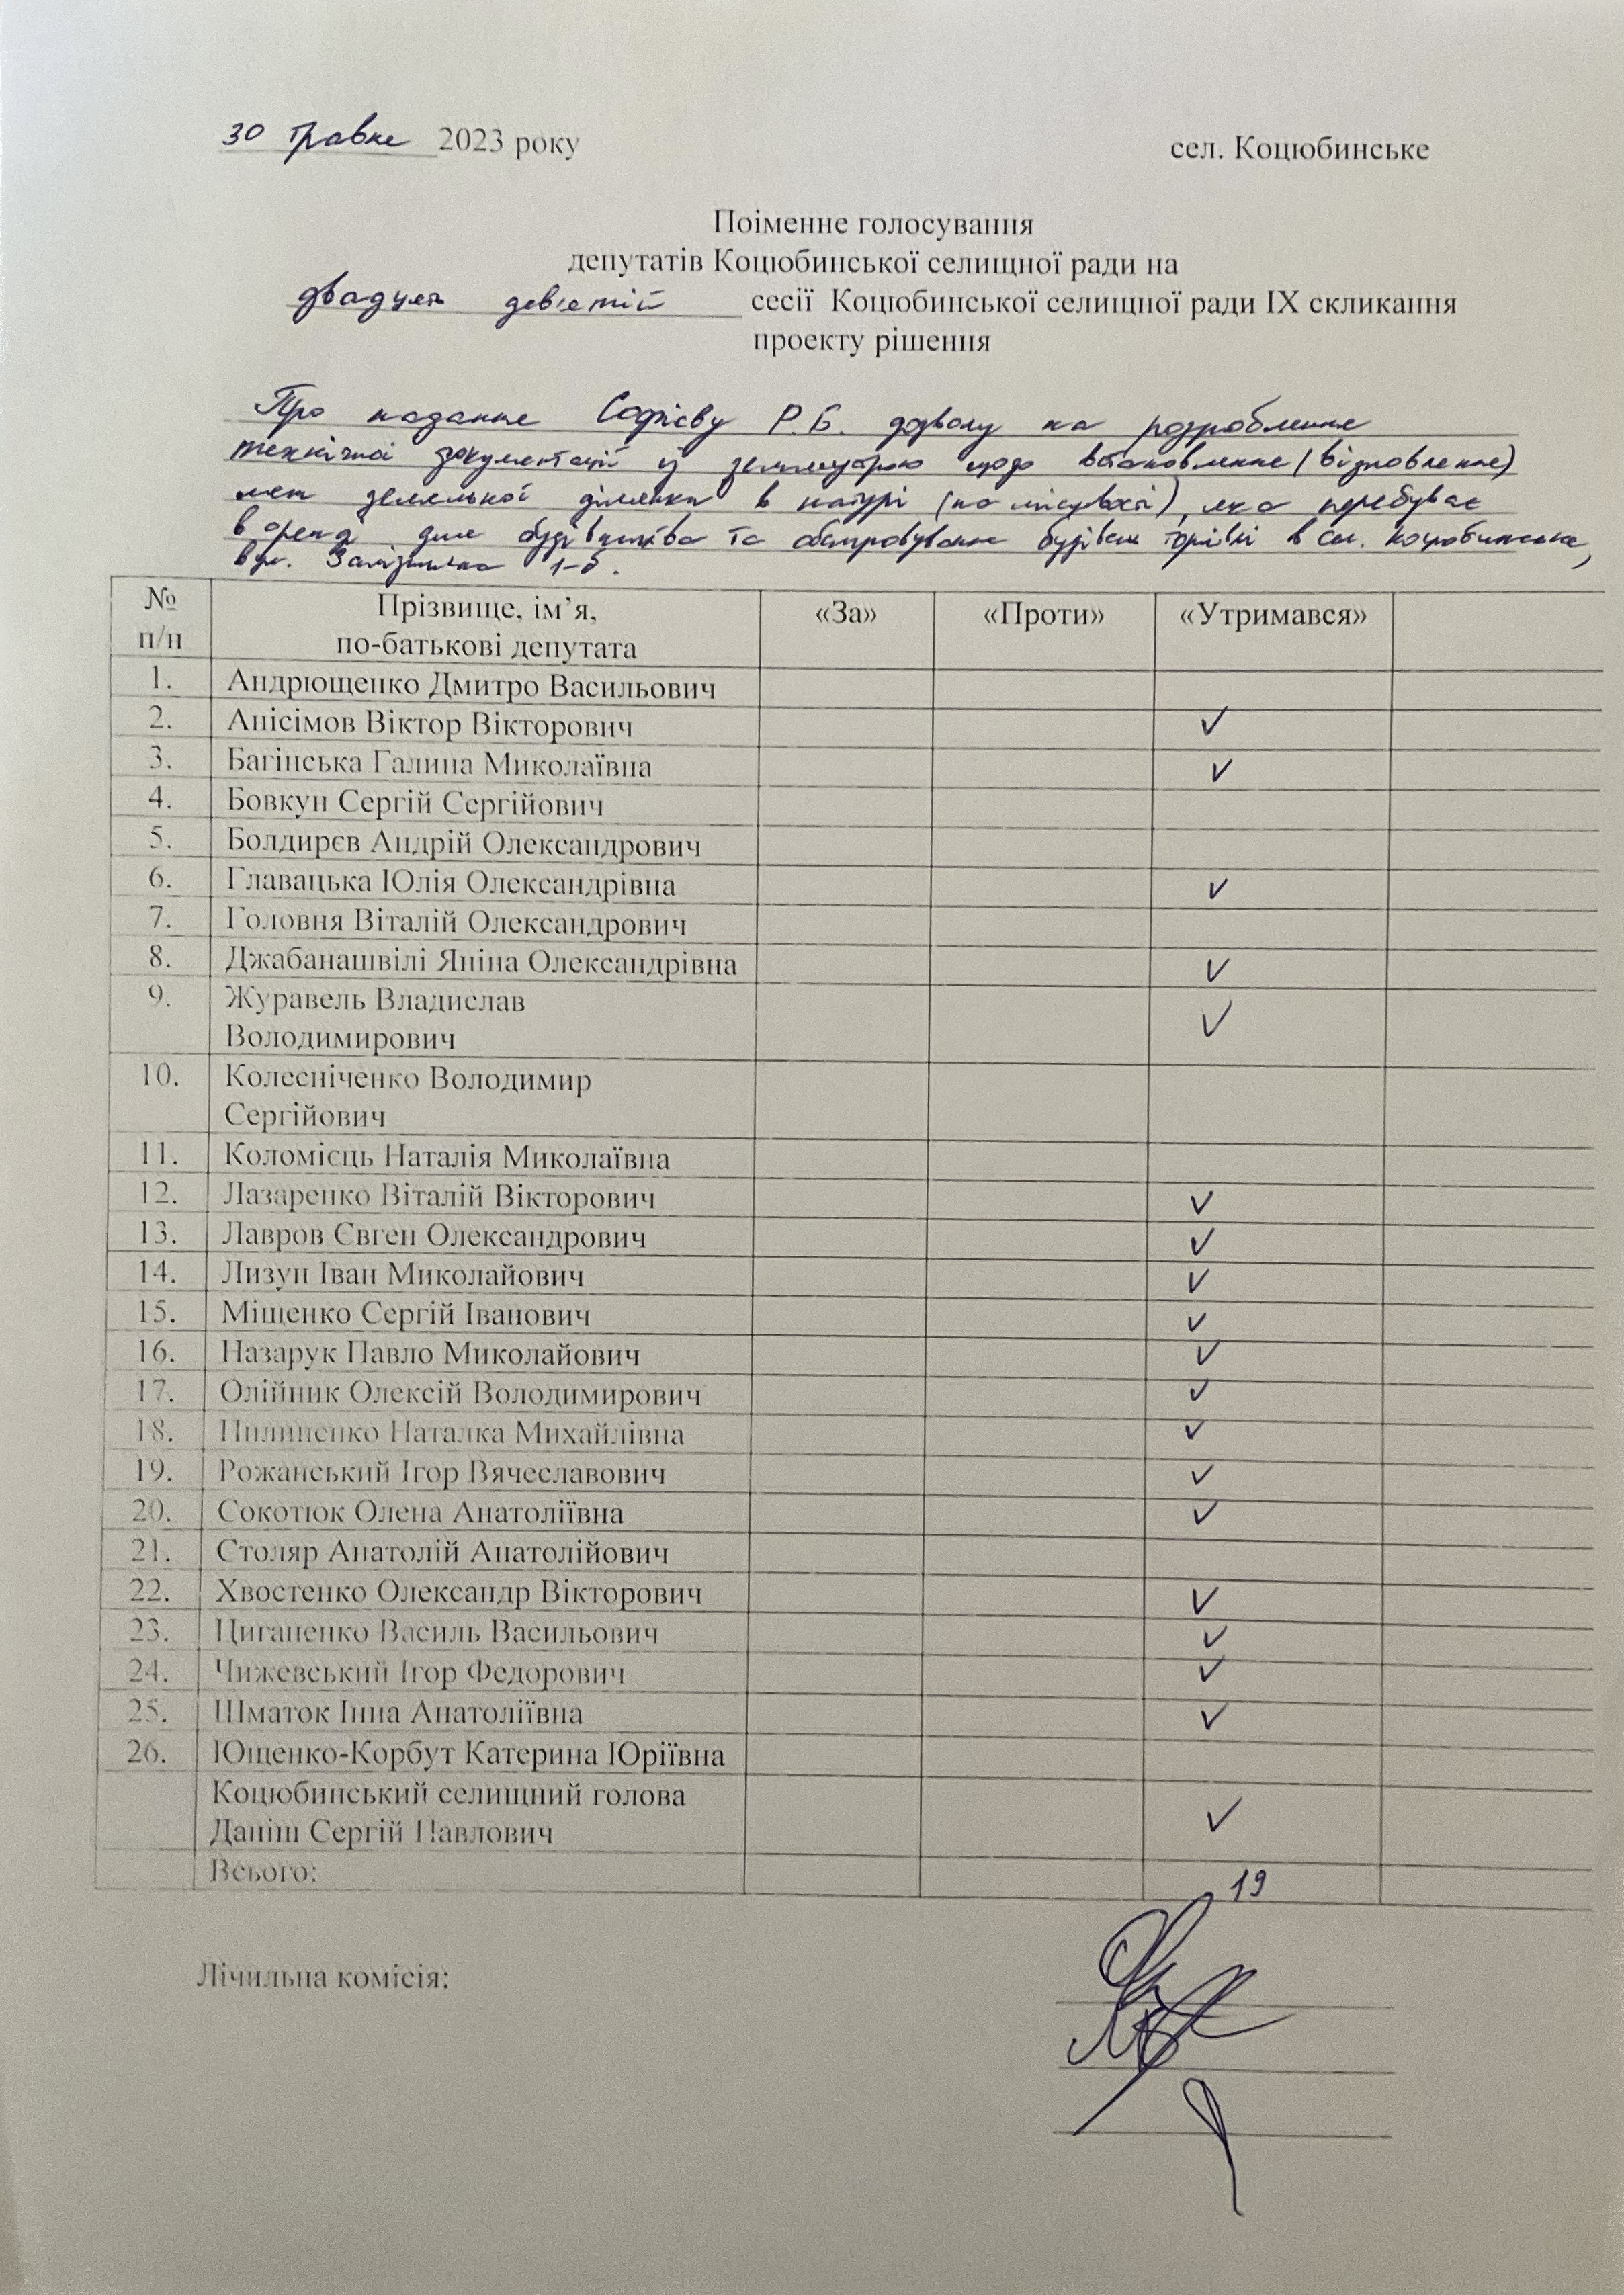 30 травня 2023 року сел. Коцюбинське
Поіменне голосування
депутатів Коцюбинської селищної ради на
двадцять дев'ятій сесії Коцюбинської селищної ради ІХ скликання
проекту рішення
Про надання Софієву Р.Б. дозволу на розроблення
технічної документації із землеустрою щодо встановлення (відновлення)
меж земельної ділянки в натурі (на місцевості), яка перебуває
в оренді для будівництва та обслуговування будівель торгівлі в сел. Коцюбинське,
вул. Залізнична 1-б.
№ п/н Прізвище, ім’я, по-батькові депутата «За» «Проти» «Утримався»
1. Андрющенко Дмитро Васильович
2. Анісімов Віктор Вікторович ✓
3. Багінська Галина Миколаївна ✓
4. Бовкун Сергій Сергійович
5. Болдирєв Андрій Олександрович
6. Главацька Юлія Олександрівна ✓
7. Головня Віталій Олександрович
8. Джабанашвілі Яніна Олександрівна ✓
9. Журавель Владислав
Володимирович ✓
10. Колесніченко Володимир
Сергійович
11. Коломієць Наталія Миколаївна
12. Лазаренко Віталій Вікторович ✓
13. Лавров Євген Олександрович ✓
14. Лизун Іван Миколайович ✓
15. Міщенко Сергій Іванович ✓
16. Назарук Павло Миколайович ✓
17. Олійник Олексій Володимирович ✓
18. Пилипенко Наталка Михайлівна ✓
19. Рожанський Ігор Вячеславович ✓
20. Сокотюк Олена Анатоліївна ✓
21. Столяр Анатолій Анатолійович
22. Хвостенко Олександр Вікторович ✓
23. Циганенко Василь Васильович ✓
24. Чижевський Ігор Федорович ✓
25. Шматок Інна Анатоліївна ✓
26. Ющенко-Корбут Катерина Юріївна
Коцюбинський селищний голова
Даніш Сергій Павлович ✓
Всього: 19
Лічильна комісія: